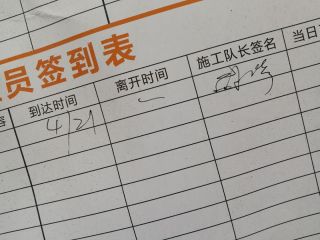 员签到表
到达时间 离开时间 施工队长签名 当日
4/21 —